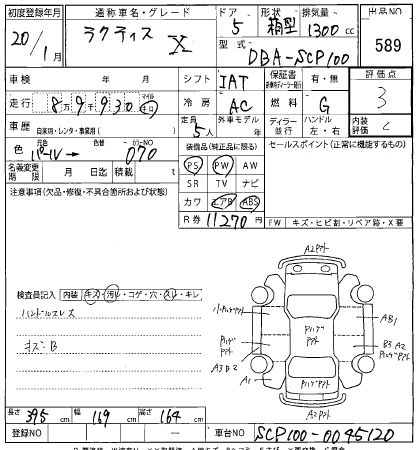 初度登録年月 通称車名・グレード ドア 形状 排気量 出品NO
20/1月 ラクティス X 5 箱型 1300 cc 589
型式 DBA-SCP100
車検 年 月 シフト IAT 保証書 有・無 評価点 3
走行 8万9千930 マイル キロ 冷房 AC 燃料 G 内装評価 C
車歴 自家用・レンタ・事業用( ) 定員 5人 外車モデル 年 ディーラー 並行 ハンドル 左・右
色 パール→ 色替 カラーNO 070 装備品(純正品に限る) セールスポイント(正常に機能するもの)
名義変更期限 月 日迄 積載 t PS PW AW
注意事項(欠品・修復・不具合箇所および状態) SR TV ナビ
カワ エアB ABS
R券 11270円 FW キズ・ヒビ割・リペア跡・X要
検査員記入 内装 キズ・汚レ・コゲ・穴・スレ・キレ
ハンドルスレ ス
キズB
A2アト
AB1
B3 A2
A1
A2アト
長さ 395 cm 幅 169 cm 高さ 164 cm
登録NO 車台NO SCP100-0045120